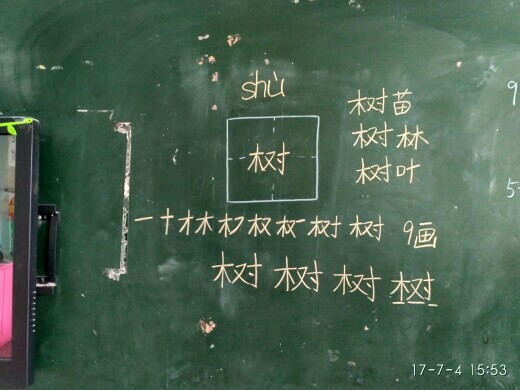 shù
树
树苗
树林
树叶
一十才木权权权树树 9画
树树树树
9
5
17-7-4 15:53